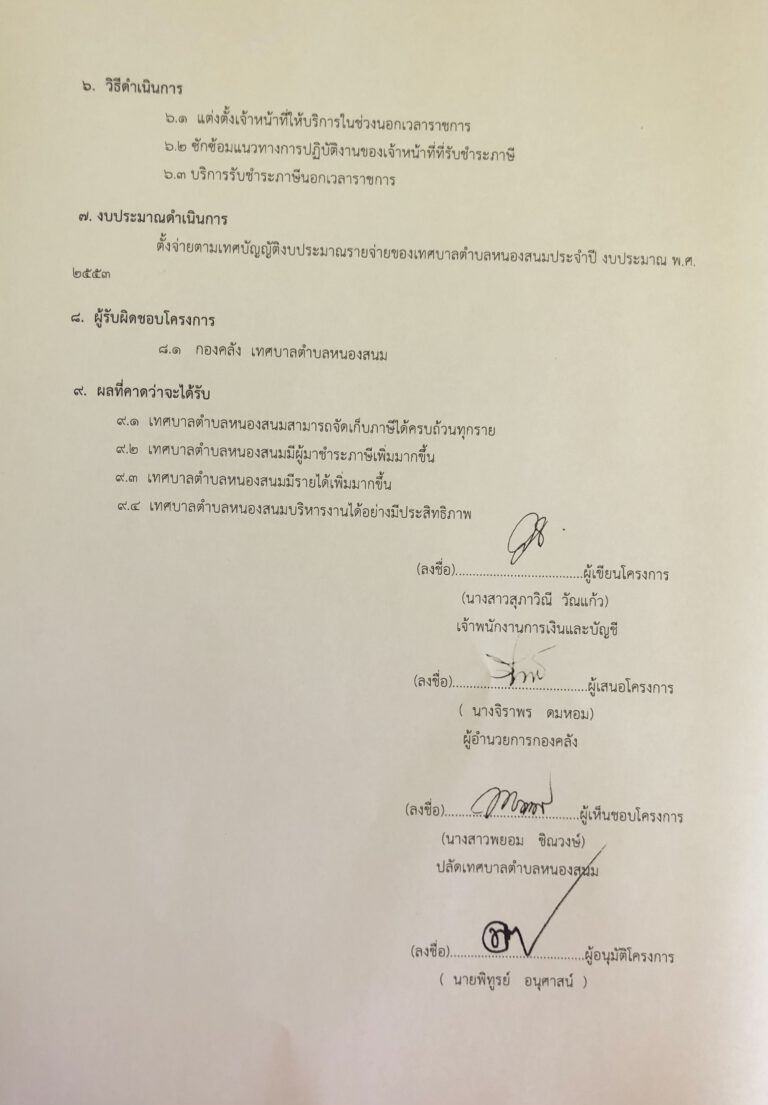 ๖. วิธีดำเนินการ
๖.๑ แต่งตั้งเจ้าหน้าที่ให้บริการในช่วงนอกเวลาราชการ
๖.๒ ซักซ้อมแนวทางการปฏิบัติงานของเจ้าหน้าที่ที่รับชำระภาษี
๖.๓ บริการรับชำระภาษีนอกเวลาราชการ
๗. งบประมาณดำเนินการ
ตั้งจ่ายตามเทศบัญญัติงบประมาณรายจ่ายของเทศบาลตำบลหนองสนมประจำปี งบประมาณ พ.ศ.
๒๕๕๓
๘. ผู้รับผิดชอบโครงการ
๘.๑ กองคลัง เทศบาลตำบลหนองสนม
๙. ผลที่คาดว่าจะได้รับ
๙.๑ เทศบาลตำบลหนองสนมสามารถจัดเก็บภาษีได้ครบถ้วนทุกราย
๙.๒ เทศบาลตำบลหนองสนมมีผู้มาชำระภาษีเพิ่มมากขึ้น
๙.๓ เทศบาลตำบลหนองสนมมีรายได้เพิ่มมากขึ้น
๙.๔ เทศบาลตำบลหนองสนมบริหารงานได้อย่างมีประสิทธิภาพ
(ลงชื่อ)......................................ผู้เขียนโครงการ
(นางสาวสุภาวิณี วัณแก้ว)
เจ้าพนักงานการเงินและบัญชี
(ลงชื่อ)........................................ผู้เสนอโครงการ
( นางจิราพร ดมหอม)
ผู้อำนวยการกองคลัง
(ลงชื่อ)........................................ผู้เห็นชอบโครงการ
(นางสาวพยอม ชิณวงษ์)
ปลัดเทศบาลตำบลหนองสนม
(ลงชื่อ)........................................ผู้อนุมัติโครงการ
( นายพิทูรย์ อนุศาสน์ )